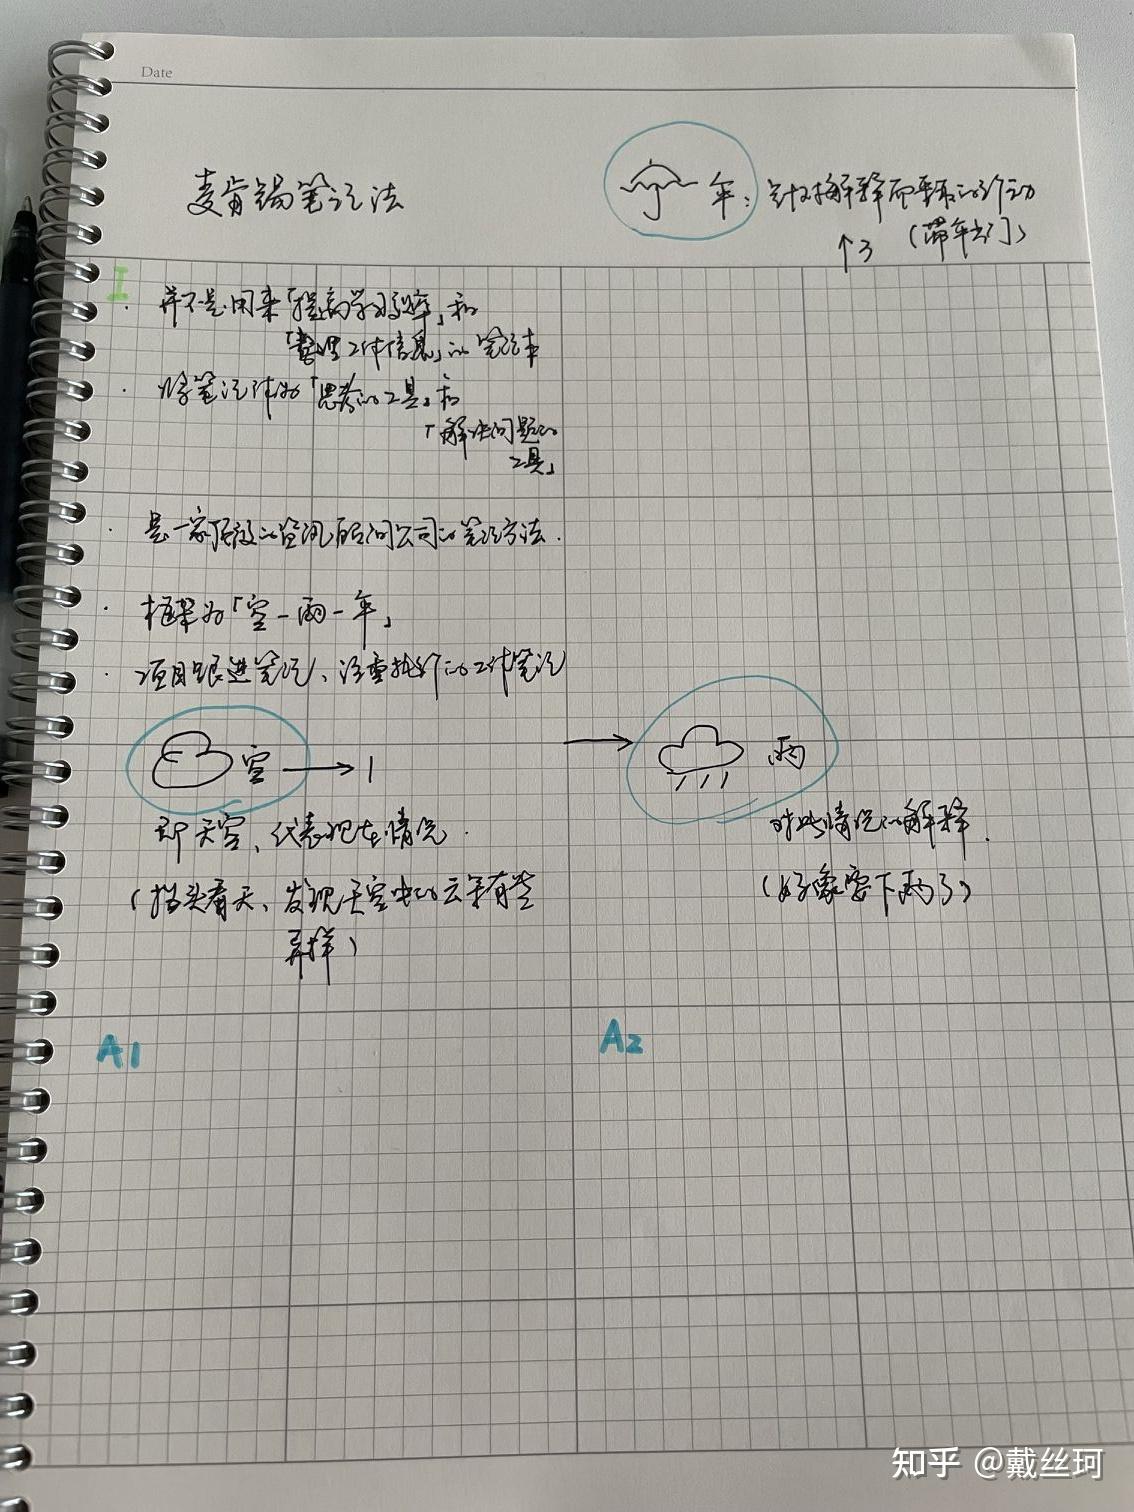 Date
麦肯锡笔记法
伞：针对解释而采取的行动
↑3 （带伞出门）
I
· 并不是用来「提高学习效率」和
「整理工作信息」的笔记本
· 将笔记作为「思考的工具」和
「解决问题的
工具」
· 是一家顶级的咨询顾问公司的笔记方法.
· 框架为「空-雨-伞」
· 项目跟进笔记、注重执行的工作笔记
空 → 1
→ 雨
即天空、代表现在情况.
对此情况的解释.
（抬头看天、发现天空中的云朵有些
异样）
（好象要下雨了）
A1
A2
知乎 @戴丝珂